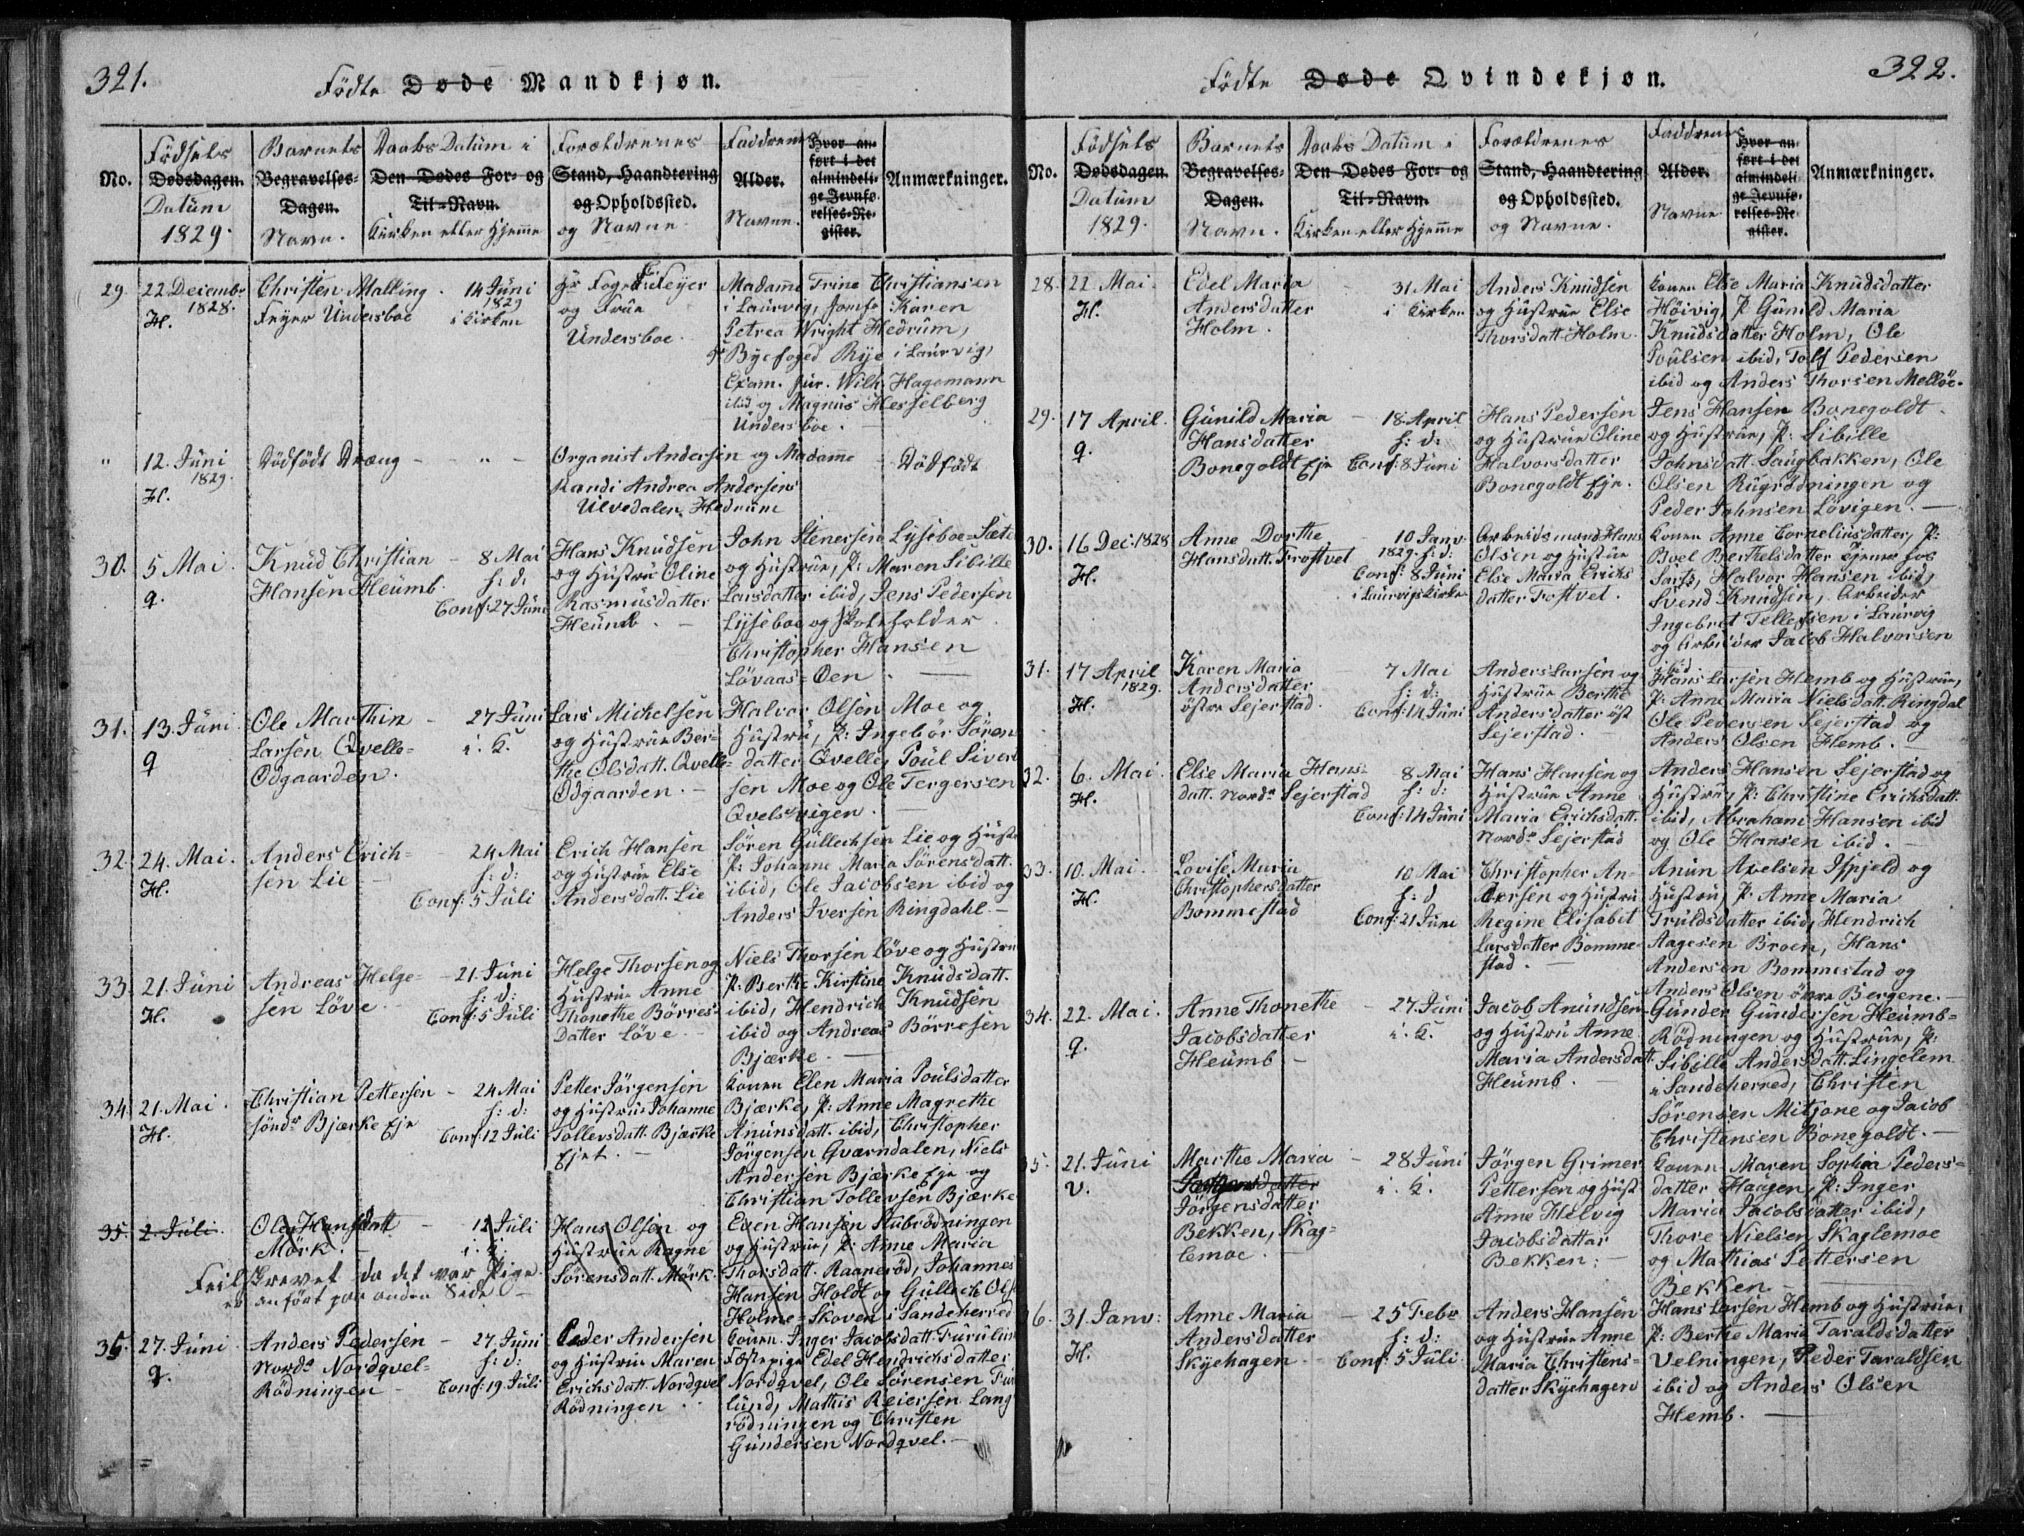 321.
Födte Døde Mandkjøn.
No.
Födsels
Dødsdagen.
Datum
1829.
Barnets
Begravelses-
Dagen.
Navn.
Daabs Datum i
Den Dødes For- og
Til-Navn.
Kirken eller Hjemme
Forældrenes
Stand, Haandtering
og Opholdssted.
og Navne.
Faddrenes
Alder.
Navne.
Hvor an-
ført i det
almindeli-
ge Jevnfø-
relses-Re-
gister.
Anmærkninger.
29. 22 Decembr
1828.
H.
Christen Malling
Feyer Undersboe
14 Juni
1829
i Kirken
Hr Foged Feyer
og Frue
Undersboe.
Madame Trine Christiansen
i Laurvig, Jomfr Karen
Petrea Wright Hedrum,
Hr Byefoged Rye i Laurvig,
Exam. jur. Wilh. Hagemann
ibid og Magnus Hesselberg
Undersboe. —
" 12. Juni
1829.
H.
Dödfödt Dræng - - " -
Organist Andersen og Madame
Randi Andrea Andersens
Ulvedalen Hedrum
Dödfödt
30. 5 Mai.
q.
Knud Christian
Hansen Heumb.
8 Mai
h: d:
Conf: 27 Juni
Hans Knudsen
og Hustru Oline
Rasmusdatter
Heumb. —
John Stenersen Lyseboe-Sæte
og Hustrue, P: Maren Sibille
Larsdatter ibid, Jens Pedersen
Lyseboe og Skoleholder
Christopher Hansen
Lövaas-Oen. —
31. 13. Juni
q
Ole Marthin
Larsen Qvelle-
Odgaarden.
27 Juni
i. K.
Lars Michelsen
og Hustrue Ber-
the Olsdatt. Qvelle-
Odgaarden. —
Halvor Olsen Moe og
Hustru, P: Ingebør Sören
datter Qvelle, Poul Siver
sen Moe og Ole Tergersen
Qvelsvigen. —
32. 24. Mai.
H.
Anders Erich-
sen Lie —
24 Mai
h: d:
Conf: 5 Juli
Erich Hansen
og Hustrue Else
Andersdatt. Lie
Sören Gullichsen Lie og Hust
P: Johanne Maria Sörensdatt.
ibid, Ole Jacobsen ibid og
Anders Iversen Ringdahl. —
33. 21. Juni
H.
Andreas Helge-
sen Löve.
21. Juni
h: d:
Conf: 5 Juli
Helge Thorsen og
Hustrue Anne
Thonethe Börres-
Datter Löve. —
Niels Thorsen Löve og Hustru
P: Berthe Kirstine Knudsdatt.
ibid, Hendrich Knudsen
ibid og Andreas Börresen
Bjærke. —
34. 21. Mai.
H.
Christian Pettersen
sönd. Bjærke Eje
24 Mai
h: d:
Conf: 12 Juli
Petter Jörgensen
og Hustrue Johanne
Tollevsdatt. Bjærke
Ejet. —
Konen Elen Maria Poulsdatter
Bjærke, P: Anne Magrethe
Anunsdatt. ibid, Christopher
Jörgensen Gværndalen, Niels
Andersen Bjærke Eje og
Christian Tollevsen Bjærke
35. 2. Juli.
Ole Hansdatt
Mörk. —
12 Juli
i. K.
Hans Olsen og
Hustrue Ragne
Sörensdatt. Mörk.
Even Hansen Stubrödningen
og Hustrue, P: Anne Maria
Thorsdatt. Raaneröd, Johannes
Hansen Holdt og Gullich Ols
Holme-Skoven i Sandeherred
Feilskrevet da det var Pige
er anfört paa anden Side —
35. 27. Juni
q.
Anders Pedersen
Nord. Nordqvel-
Rödningen —
27. Juni
h: d:
Conf: 19. Juli
Peder Andersen
og Hustrue Maren
Erichsdatt. Nordqvel
Rödningen.
Konen Inger Jacobsdatt. Furulund
Fæstepige Edel Hendrichsdatter
Nordqvel, Ole Sörensen Furu
lund, Mathis Reiersen Lang
rödningen og Christen
Gundersen Nordqvel. —
322.
Födte Døde Qvindekjøn.
No.
Födsels
Dødsdagen.
Datum
1829.
Barnets
Begravelses-
Dagen.
Navn.
Daabs Datum i
Den Dødes For- og
Til-Navn.
Kirken eller Hjemme
Forældrenes
Stand, Haandtering
og Opholdssted.
og Navne.
Faddrenes
Alder.
Navne
Hvor an-
ført i det
almindeli-
ge Jevnfø-
relses-Re-
gister.
Anmærkninger.
28. 22. Mai.
H.
Edel Maria
Andersdatter
Holm.
31. Mai
i Kirken
Anders Knudsen
og Hustrue Else
Thorsdatt. Holm.
Konen Else Maria Knudsdatter
Höivig, P: Gunild Maria
Knudsdatter Holm, Ole
Poulsen ibid, Tolf Pedersen
ibid og Anders Thorsen Mellöe.
29. 17 April.
q.
Gunild Maria
Hansdatter
Bonegoldt Eje
18. April
h: d:
Conf: 8 Juni
Hans Pedersen
og Hustrue Oline
Halvorsdatter
Bonegoldt Eje.
Jens Hansen Bonegoldt
og Hustrue, P: Sibille
Johnsdatt. Saugbakken, Ole
Olsen Rugrödningen og
Peder Johnsen Lövigen. —
30. 16 Dec: 1828
H.
Anne Dorthe
Hansdatt. Trostvet
10 Janv
1829. h: d:
Conf: 8 Juni
i Laurvigs Kirke
Arbeidsmand Hans
Olsen og Hustrue
Else Maria Erichs
datter Trostvet.
Konen Anne Corneliusdatter, P:
Boel Berthelsdatter tjener hos
Sartz, Halvor Hansen ibid,
Svend Knudsen, Arbeider
Ingebret Tellefsen i Laurvig
og Arbeider Jacob Halvorsen
ibid
31. 17 April
1829.
H.
Karen Maria
Andersdatter
östre Sejerstad.
7 Mai
h: d:
Conf: 14 Juni
Anders Larsen og
Hustrue Berthe
Andersdatter öst
Sejerstad. —
Hans Larsen Hemb og Hustrue,
P: Anne Maria Nielsdatt. Ringdal
Ole Pedersen Sejerstad og
Anders Olsen Hemb. —
32. 6. Mai.
H.
Else Maria Hans-
datt. Nord. Sejerstad
8 Mai
h: d:
Conf: 14 Juni
Hans Hansen og
Hustrue Anne
Maria Erichsdatt.
Nord. Sejerstad
Anders Hansen Sejerstad og
Hustru, P: Christine Erichsdatt.
ibid, Abraham Hansen ibid
og Ole Hansen ibid. —
33. 10. Mai.
H.
Lovise Maria
Christophersdatter
Bommestad
10 Mai
h: d
Conf: 21 Juni
Christopher An-
dersen og Hustru
Regine Elisabet
Larsdatter Bomme-
stad. —
Anun Axelsen Ispjeld og
Hustru, P: Anne Maria
Truldsdatter ibid, Hendrich
Aagesen Broen, Hans
Andersen Bommestad og
Anders Olsen övre Bergene. —
34. 22. Mai.
q.
Anne Thonethe
Jacobsdatter
Heumb —
27 Juni
i. K.
Jacob Anundsen
og Hustru Anne
Maria Andersdatt.
Heumb. —
Gunder Gundersen Heumb-
Rödningen og Hustrue, P:
Sibille Andersdatt. Lingelem
i Sandeherred, Christen
Sörensen Mitjone og Jacob
Christensen Bonegoldt. —
35. 21. Juni
V.
Marthe Maria
Jörgensdatter
Bekken, Skag-
lemoe —
28 Juni
i. K.
Jörgen Grimer
Pettersen og Hust
Anne Helvig
Jacobsdatter
Bekken.
Konen Maren Sophia Peders-
datter Haagen, P: Inger
Maria Jacobsdatter ibid,
Thore Nielsen Skaglemoe
og Mathias Pettersen
Bekken. —
36. 31. Janv:
H.
Anne Maria
Andersdatter
Skyehagen —
25 Febr
h: d:
Conf: 5 Juli
Anders Hansen
og Hustrue Anne
Maria Christens-
datter Skyehagen
Hans Larsen Hemb og Hustrue,
P: Berthe Maria Taraldsdatter
Velningen, Peder Taraldsen
ibid og Anders Olsen
Hemb. —